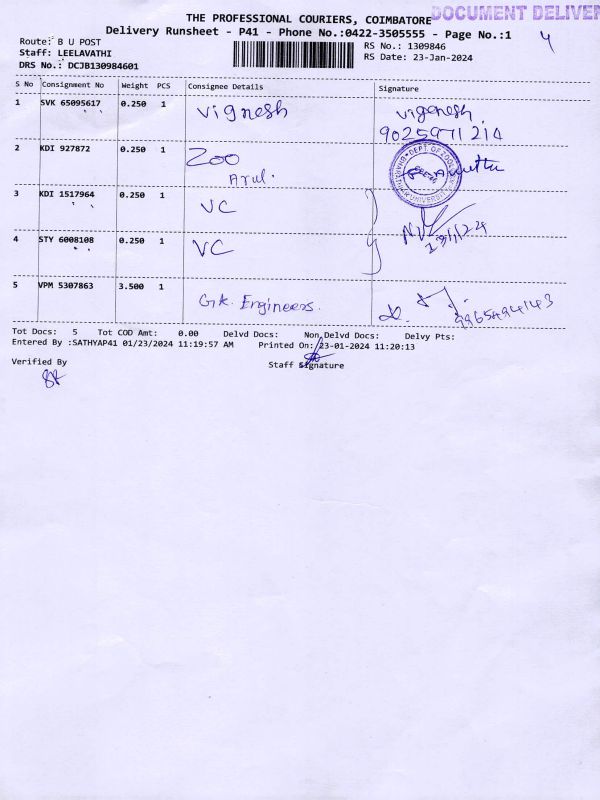 DOCUMENT DELIVER
THE PROFESSIONAL COURIERS, COIMBATORE
Delivery Runsheet - P41 - Phone No.:0422-3505555 - Page No.:1
4
Route: B U POST
RS No.: 1309846
Staff: LEELAVATHI
RS Date: 23-Jan-2024
DRS No.: DCJB130984601
S No Consignment No Weight PCS Consignee Details Signature
1 SVK 65095617 0.250 1 Vignesh vigenesh.
9025971214
2 KDI 927872 0.250 1 Zoo
Arul.
DEPT. OF ZOOLOGY
BHARATHIAR UNIVERSITY
3 KDI 1517964 0.250 1 VC
23/1/24
4 STY 6008108 0.250 1 VC
5 VPM 5307863 3.500 1 G.K. Engineers.
9965494143
Tot Docs: 5 Tot COD Amt: 0.00 Delvd Docs: Non Delvd Docs: Delvy Pts:
Entered By :SATHYAP41 01/23/2024 11:19:57 AM Printed On: 23-01-2024 11:20:13
Verified By Staff Signature